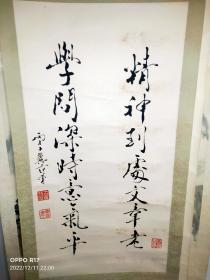 精神到處文章老
學問深時意氣平
OPPO R17
2022/12/11 22:00